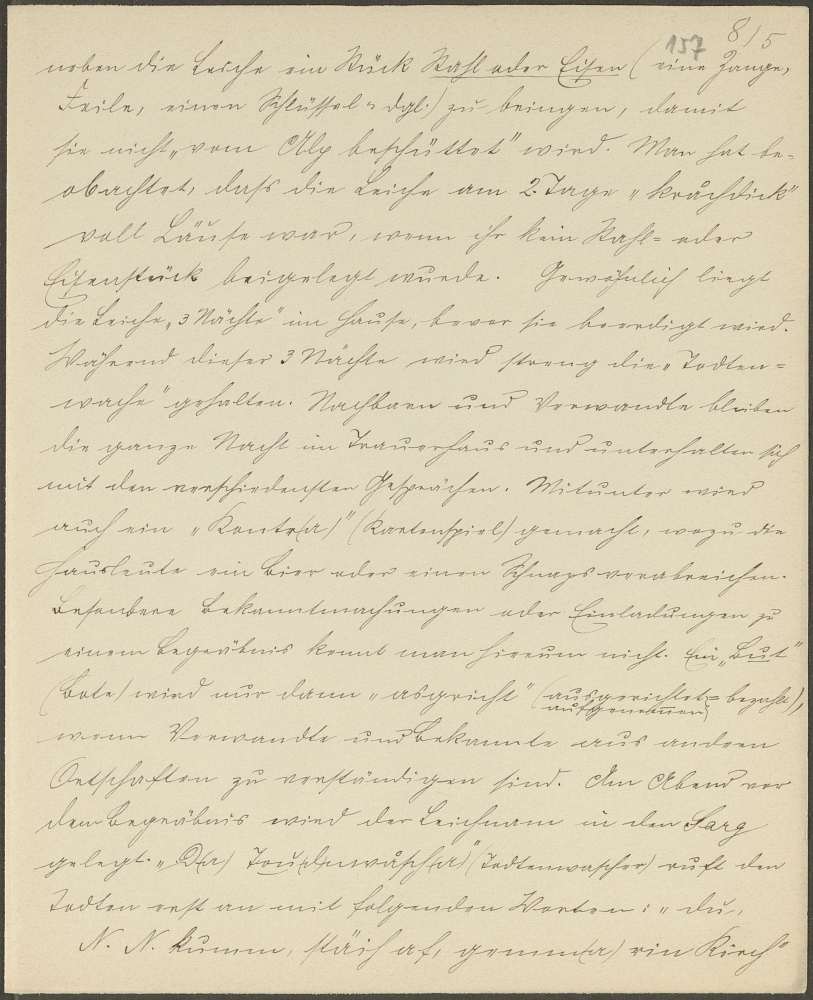 157 8/5
neben die Leiche ein Stück Stahl oder Eisen (eine Zange,
Feile, einen Schlüssel u dgl.) zu bringen, damit
sie nicht „vom Alp beschüttet" wird. Man hat be=
obachtet, dass die Leiche am 2. Tage „kråchdick"
voll Läuse war, wenn ihr kein Stahl= oder
Eisenstück beigelegt wurde. Gewöhnlich liegt
die Leiche „3 Nächte" im Hause, bevor sie beerdigt wird.
Während dieser 3 Nächte wird streng die „Todten=
wache" gehalten. Nachbarn und Verwandte bleiben
die ganze Nacht im Trauerhaus und unterhalten sich
mit den verschiedensten Gesprächen. Mitunter wird
auch ein „Kontr(a)" (Kartenspiel) gemacht, wozu die
Hausleute ein Bier oder einen Schnaps verabreichen.
Besondere Bekanntmachungen oder Einladungen zu
einem Begräbnis kennt man hierum nicht. Ein „But"
(Bote) wird nur dann „asgricht" (ausgerichtet = bezahlt),
aufgenommen
wenn Verwandte und Bekannte aus andern
Ortschaften zu verständigen sind. Am Abend vor
dem Begräbnis wird der Leichnam in den Sarg
gelegt. „D(a) Toudnwåsch(a)" (Todtenwascher) ruft den
Todten erst an mit folgenden Worten: „Du,
N. N. kumm, stäih af, gemm(a) ein Kirch"